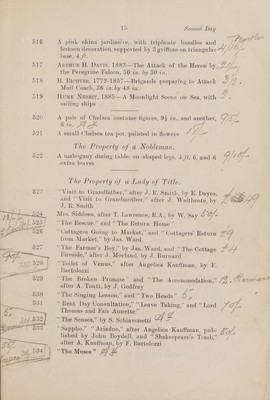 15 Second Day
516 A pink china jardinière, with triplicate handles and
festoon decoration, supported by 3 griffons on triangular
base, 4 ft.
517 ARTHUR H. DAVIS, 1883—The Attack of the Heron by
the Peregrine Falcon, 50 in. by 30 in.
518 H. EICHTER, 1772-1857—Brigands preparing to Attack
Mail Coach, 36 in. by 48 in.
519 HUME NESBIT, 1885—A Moonlight Scene on Sea, with
sailing ships
520 A pair of Chelsea costume figures, 9½ in. and another,
6 in.
521 A small Chelsea tea pot, painted in flowers
The Property of a Nobleman.
522 A mahogany dining table, on shaped legs, 4 ft. 6, and 6
extra leaves
The Property of a Lady of Title.
523 "Visit to Grandfather," after J. E. Smith, by E. Dayes,
and "Visit to Grandmother," after J. Waithonte, by
J. E. Smith
524 Mrs. Siddons, after T. Lawrence, R.A., by W. Say
525 "The Rescue," and "The Return Home"
526 "Cottagers Going to Market," and "Cottagers' Return
from Market," by Jas. Ward
527 "The Farmer's Boy," by Jas. Ward, and "The Cottage
Fireside," after J. Morland, by J. Burnard
528 "Toilet of Venus," after Angelica Kauffman, by F.
Bartolozzi
529 "The Broken Promise" and "The Accommodation,"
after A. Tonti, by J. Godfrey
530 "The Singing Lesson," and "Two Heads"
531 "Rent Day Consultation," "Leave Taking," and "Lord
Thomas and Fair Annette"
532 "The Senses," by S. Schiavonetti
533 "Sappho," "Ariadne," after Angelica Kauffman, pub-
lished by John Boydell, and "Shakespeare's Tomb,"
after A. Kauffman, by F. Bartolozzi
534 "The Muses"